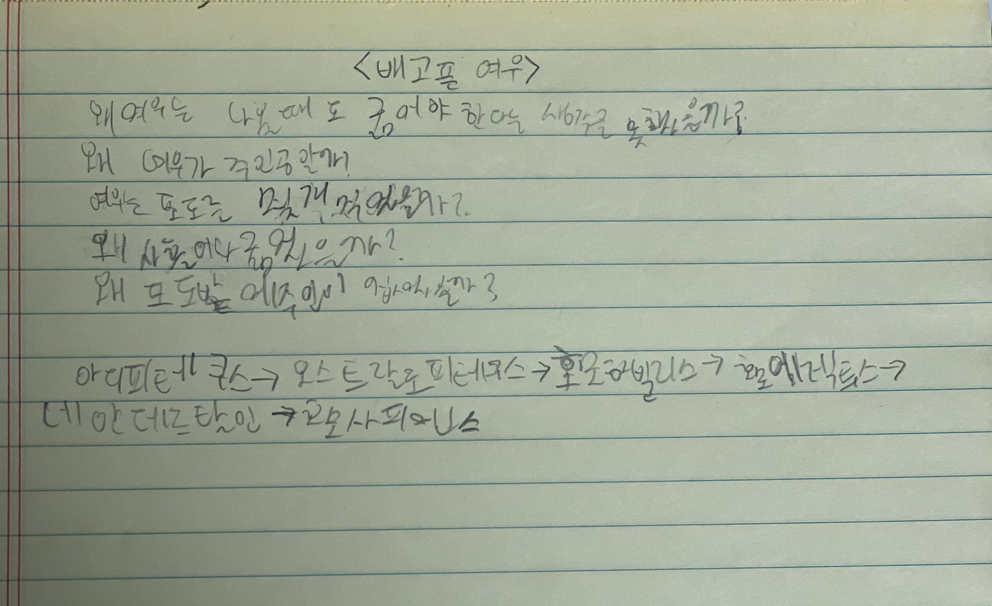 <배고픈 여우>
왜 여우는 나올때도 굶어야 한다는 생각을 못했을까?
왜 여우가 주인공일까?
여우는 포도를 몇개 먹었을까?
왜 사흘이나 굶었을까?
왜 포도밭에 주인이 없었을까?
아디피테쿠스→오스트랄로피테쿠스→호모하빌리스→호모에렉투스→
네안데르탈인→호모사피엔스